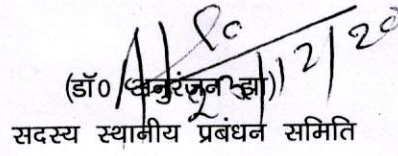 (डॉ0 अनुरंजन झा)
सदस्य स्थानीय प्रबंधन समिति